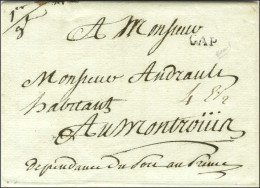 A Monsieur
CAP
Monsieur Andrault
habitant
Au Montroüis
dependance du Port au Prince